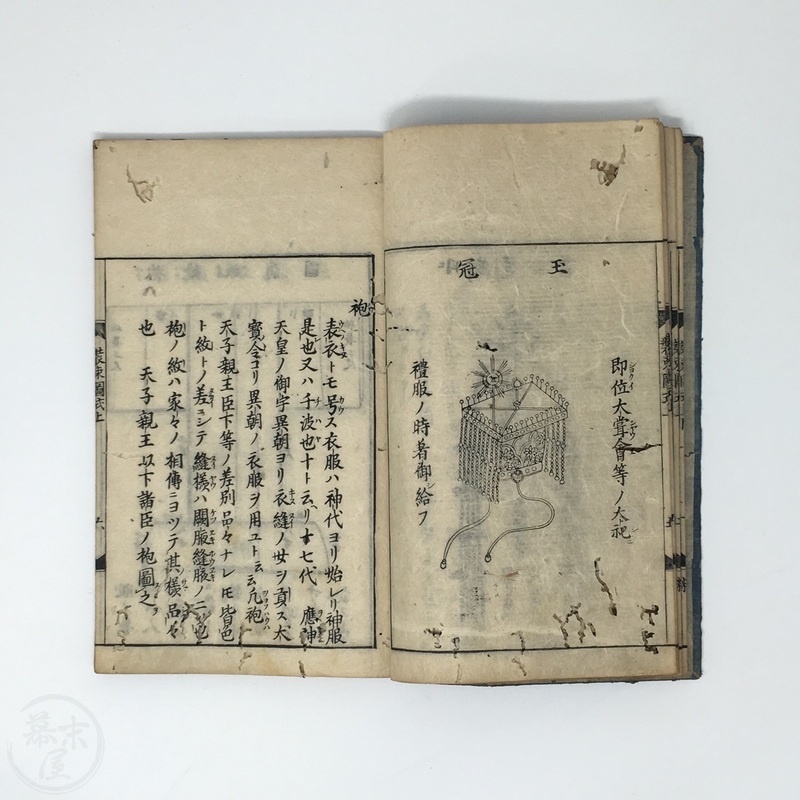 玉冠
即位大甞會等ノ大祀
禮服ノ時著御給フ
袍
表衣トモ号ス衣服ハ神代ヨリ始レリ神服
是也又ハ千波也十ト云リ十七代 應神
天皇ノ御宇異朝ヨリ衣縫ノ女ヲ貢ス大
寳令ヨリ異朝ノ衣服ヲ用ユト云凡袍
天子親王臣下等ノ差別品々ナレモ皆色
ト紋トノ差ニシテ縫様ハ闕腋縫腋ノ二ツ也
袍ノ紋ハ家々ノ相傳ニヨツテ其様品々
也 天子親王以下諸臣ノ袍圖之
裝束圖式上
六
幕末屋